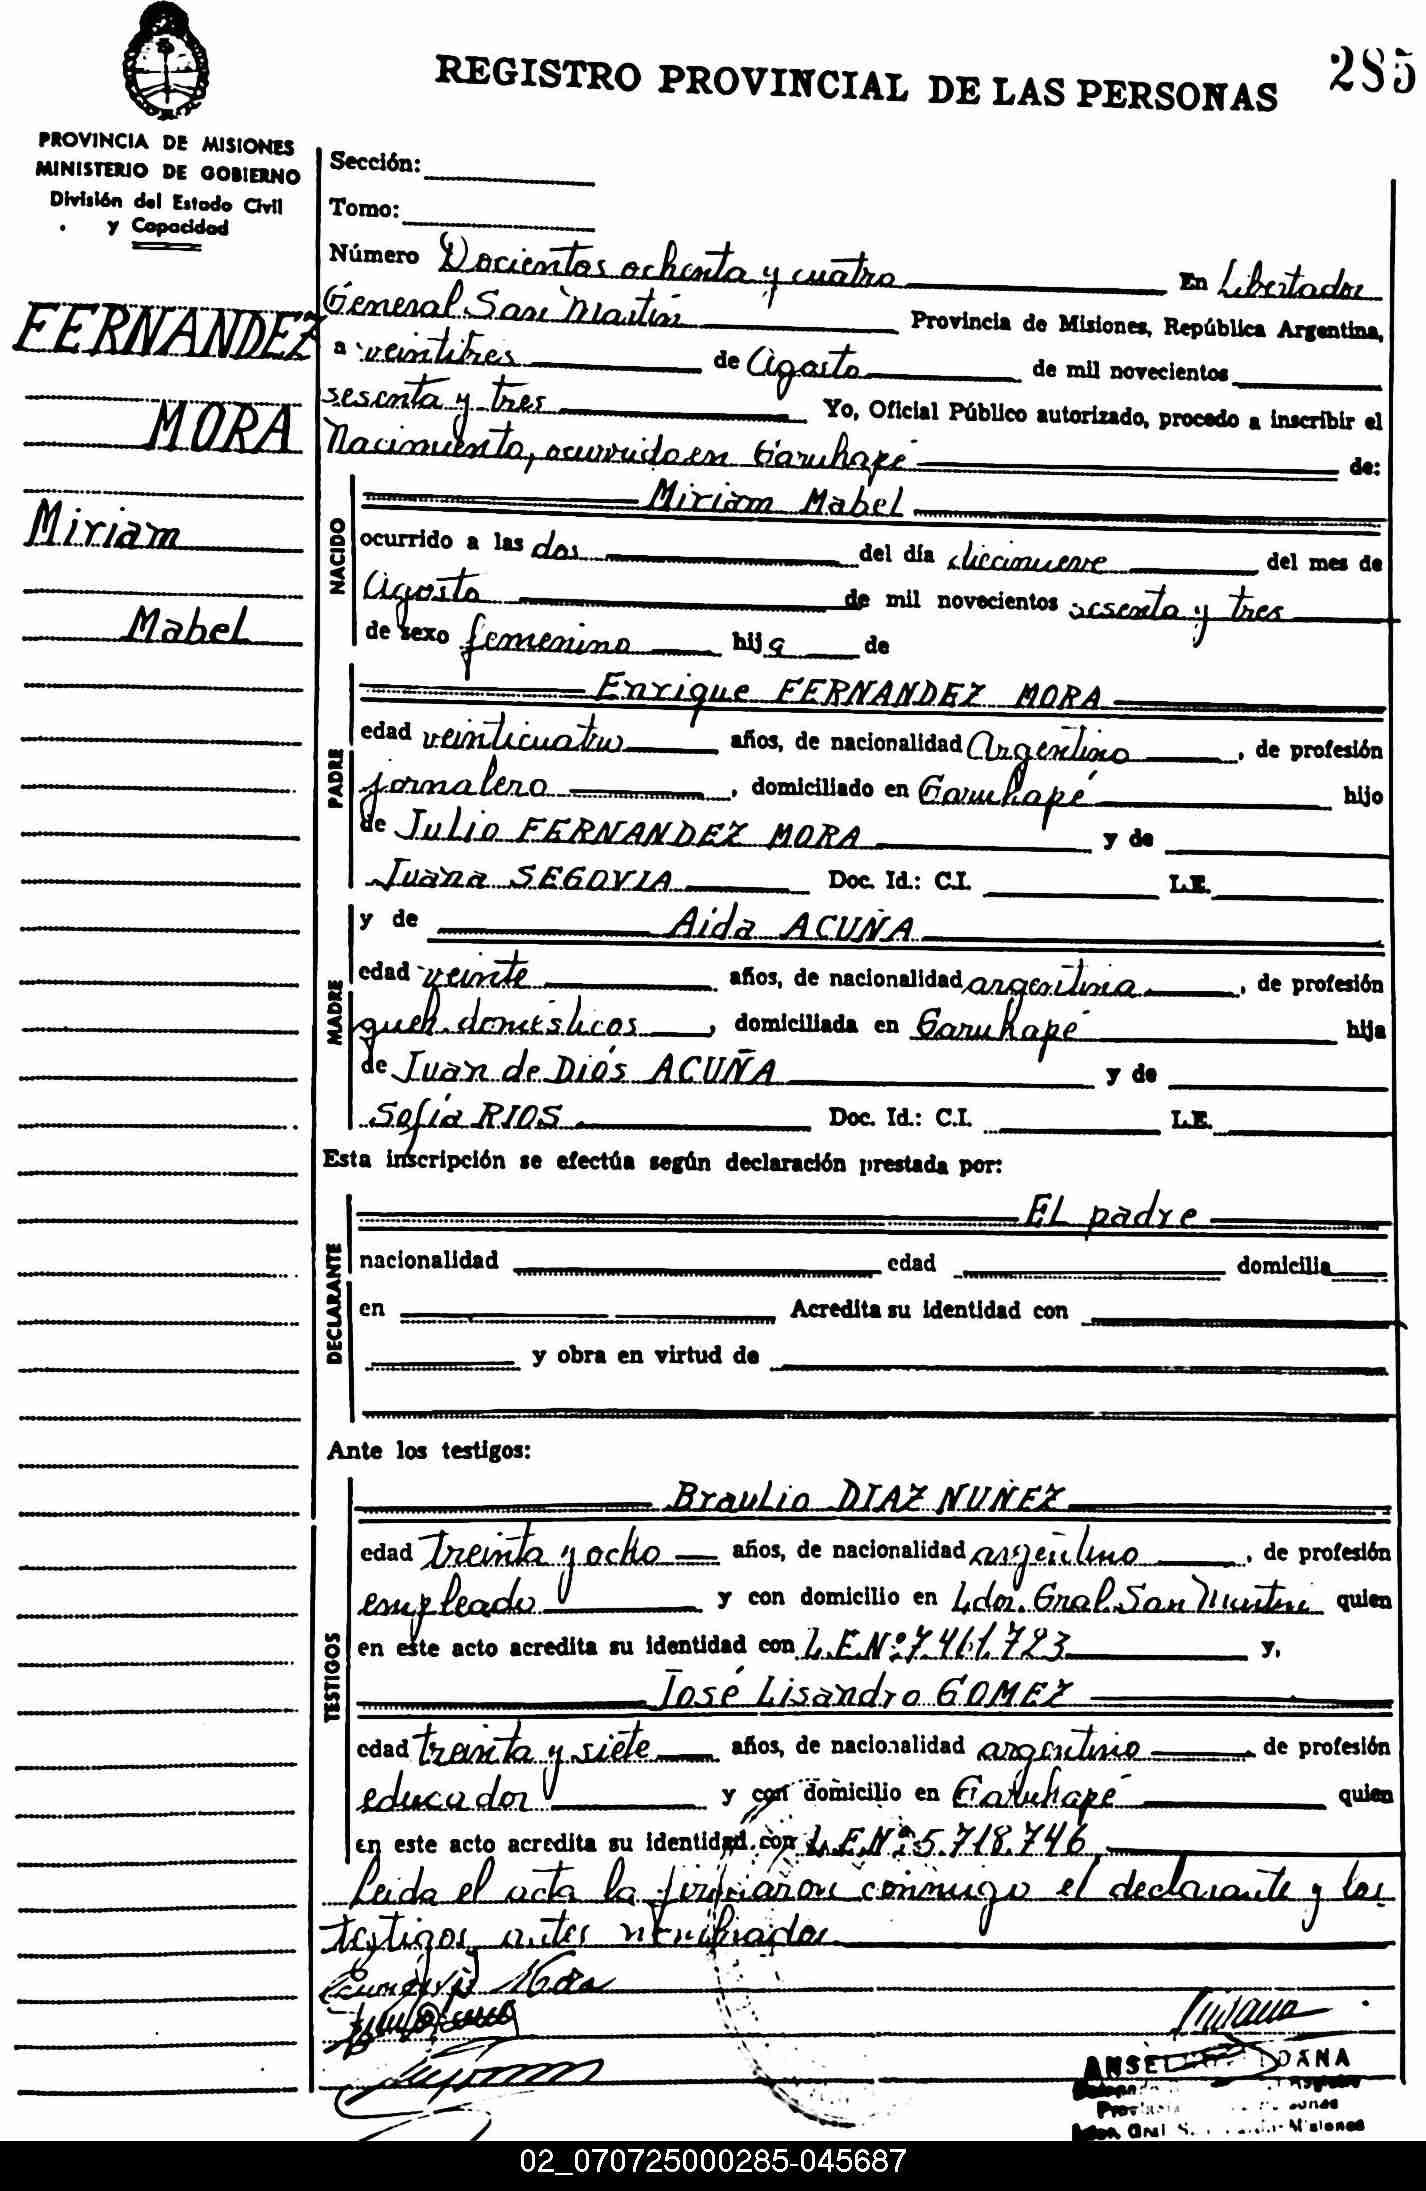 REGISTRO PROVINCIAL DE LAS PERSONAS
285
PROVINCIA DE MISIONES
MINISTERIO DE GOBIERNO
División del Estado Civil
y Capacidad
FERNANDEZ
MORA
Miriam
Mabel
Sección:
Tomo:
Número Docientos ochenta y cuatro En Libertador
General San Martín Provincia de Misiones, República Argentina,
a veintitres de Agosto de mil novecientos
sesenta y tres Yo, Oficial Público autorizado, procedo a inscribir el
Nacimiento, ocurrido en Garuhapé de:
NACIDO
Miriam Mabel
ocurrido a las dos del día diecinueve del mes de
Agosto de mil novecientos sesenta y tres
de sexo femenino hija de
PADRE
Enrique FERNANDEZ MORA
edad veinticuatro años, de nacionalidad Argentino, de profesión
jornalero, domiciliado en Garuhapé hijo
de Julio FERNANDEZ MORA y de
Juana SEGOVIA Doc. Id.: C.I. L.E.
MADRE
y de Aida ACUÑA
edad veinte años, de nacionalidad argentina, de profesión
queh. domésticos, domiciliada en Garuhapé hija
de Juan de Diós ACUÑA y de
Sofía RIOS Doc. Id.: C.I. L.E.
Esta inscripción se efectúa según declaración prestada por:
DECLARANTE
EL padre
nacionalidad edad domicilia
en Acredita su identidad con
y obra en virtud de
Ante los testigos:
TESTIGOS
Braulio DIAZ NUÑEZ
edad treinta y ocho años, de nacionalidad argentino, de profesión
empleado y con domicilio en Ldor. Gral. San Martín quien
en este acto acredita su identidad con L.E.Nº 7.461.723 y,
José Lisandro GOMEZ
edad treinta y siete años, de nacionalidad argentino de profesión
educador y con domicilio en Garuhapé quien
en este acto acredita su identidad con L.E.Nº 5.718.746
Leida el acta la firmaron conmigo el declarante y los
testigos antes nombrados
Mora
02_070725000285-045687